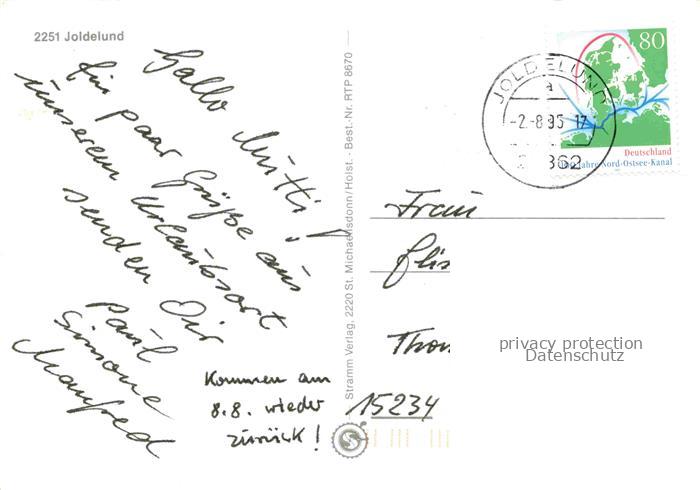 2251 Joldelund
Hallo Mutti!
Ein paar Grüße aus
unserem Urlaubsort
senden Dir
Paul
Simone
Manfred
Kommen am
8.8. wieder
zurück!
Stramm Verlag, 2220 St. Michaelisdonn/Holst. - Best.-Nr. RTP 8670
80
Deutschland
100 Jahre Nord-Ostsee-Kanal
JOLDELUND
a
-2.-8.95-17
Frau
Elis
Thom
15234
privacy protection
Datenschutz